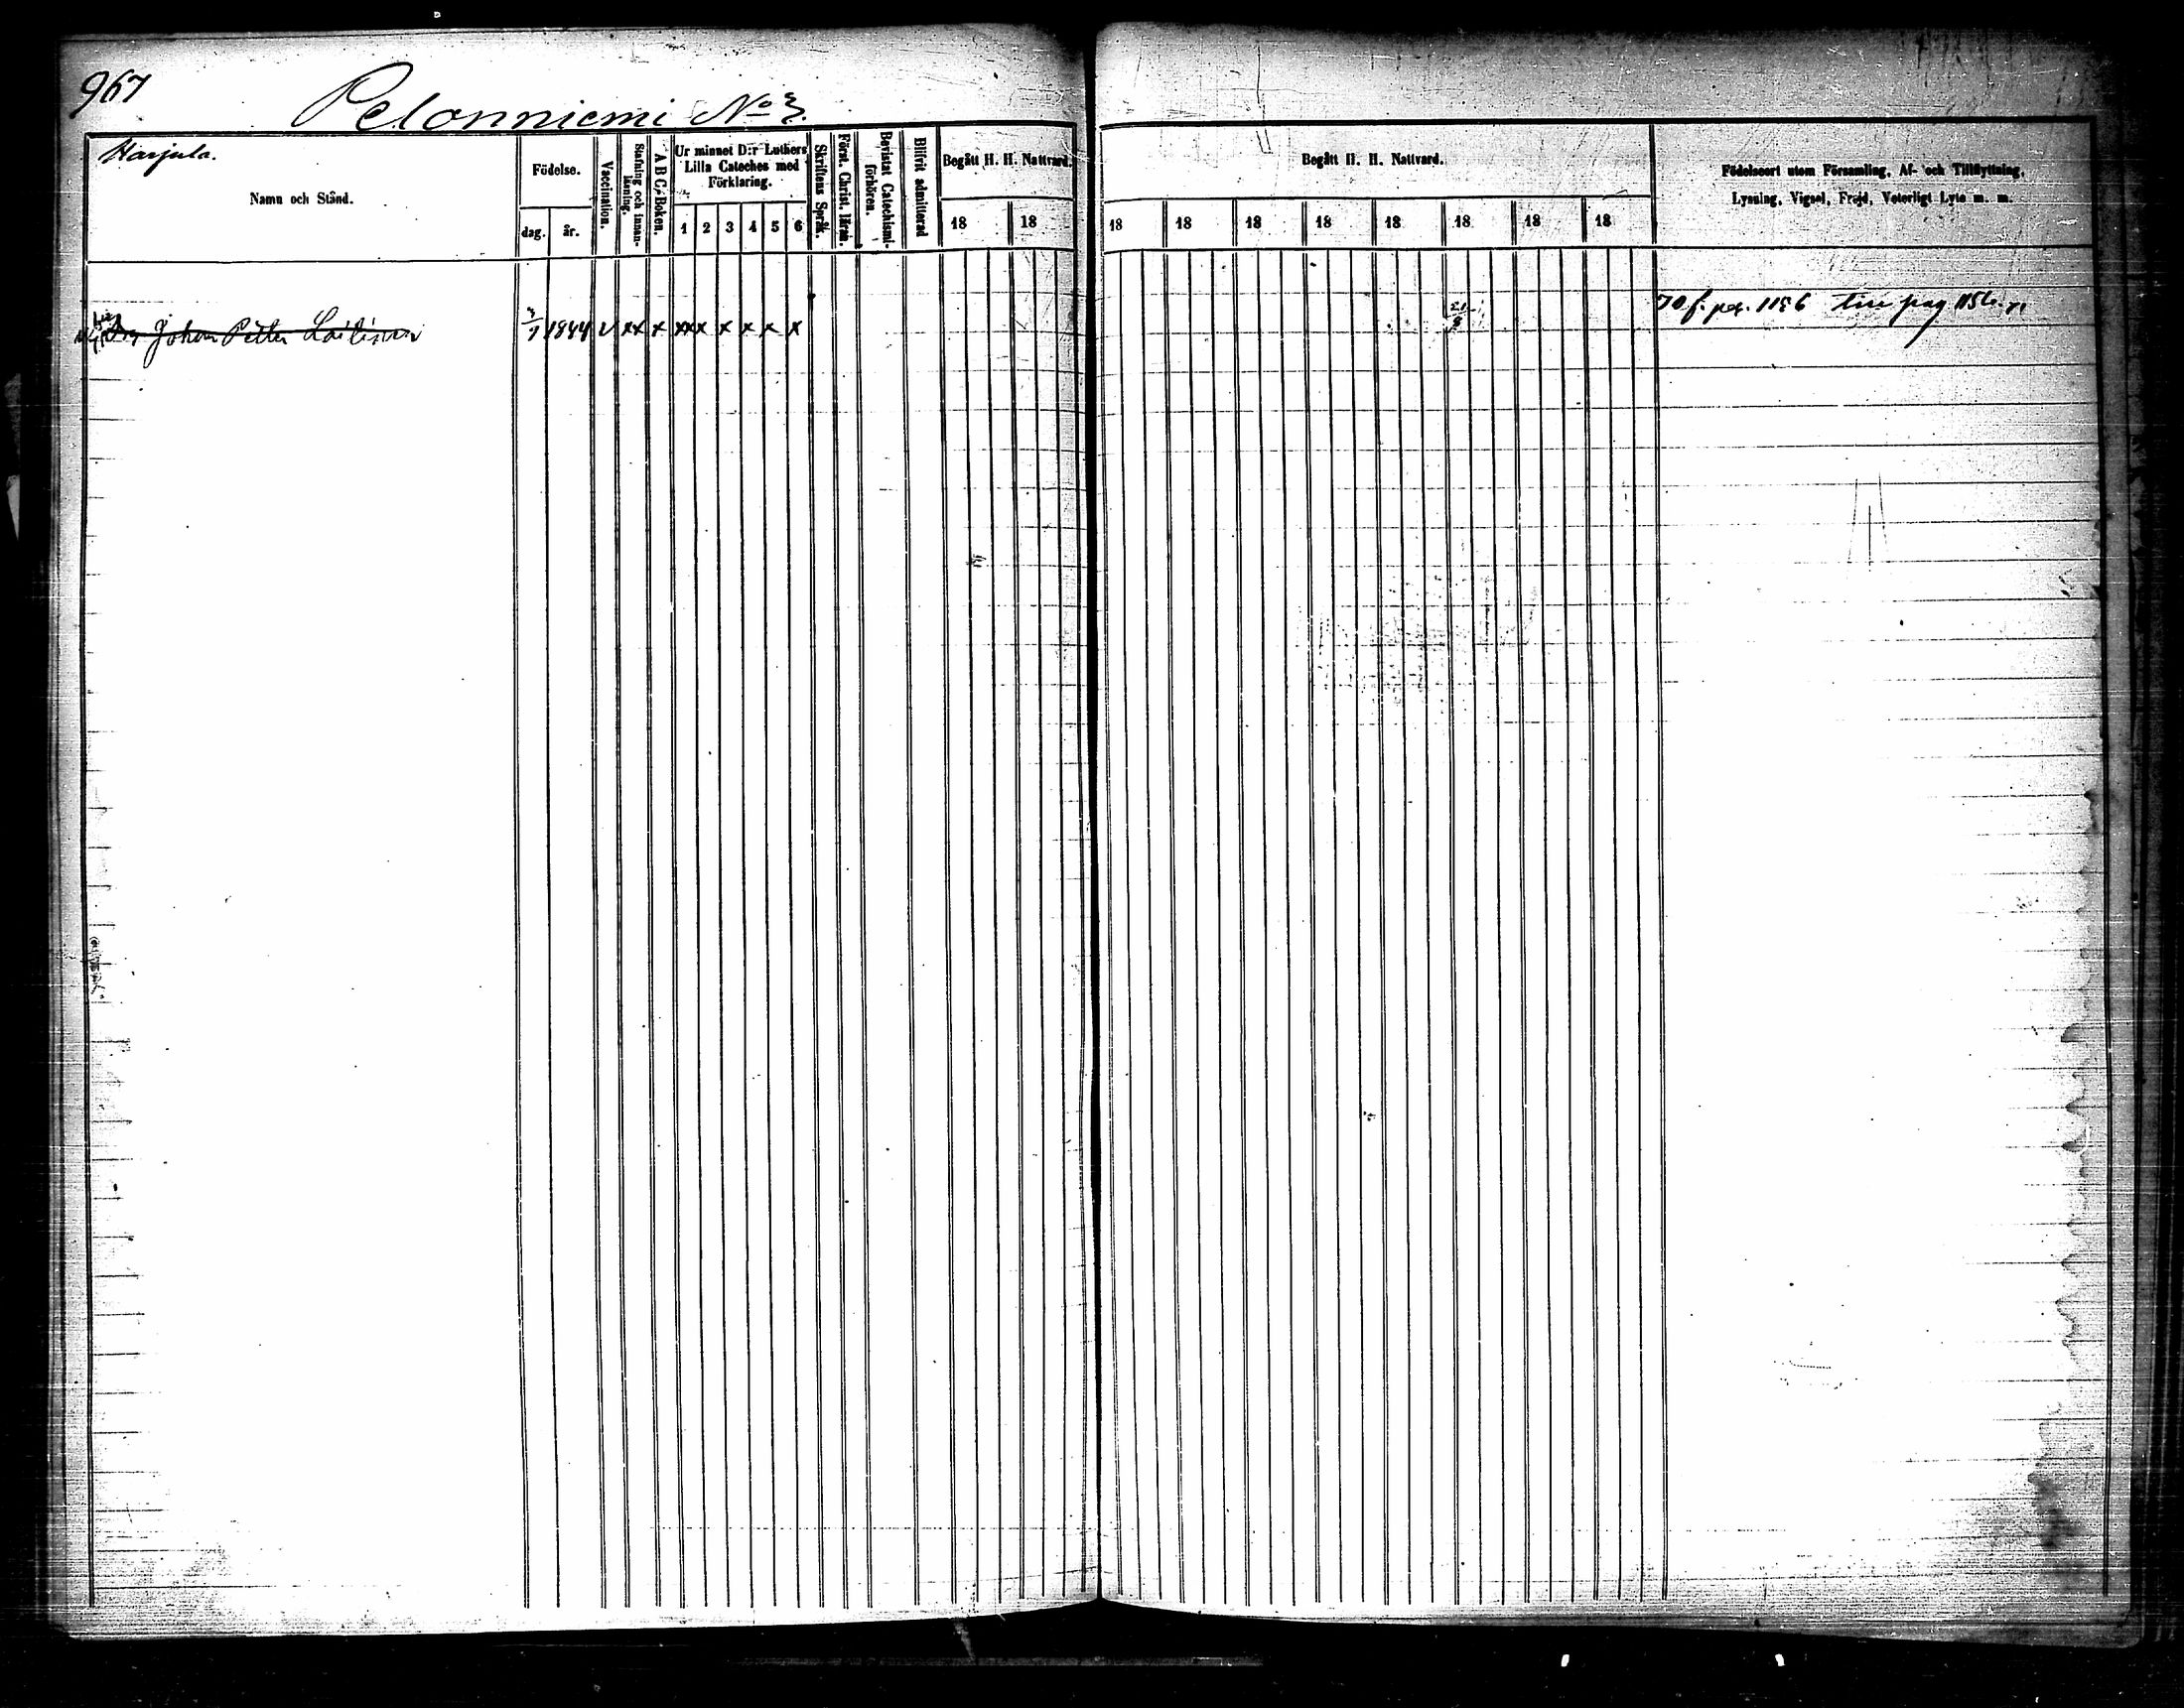 967
Pelonniemi No 3.
Harjula.
Namn och Stånd.
Födelse.
dag.
år.
Vaccination.
Stafning och innan-läsning.
A B C-Boken.
Ur minnet D:r Luthers
Lilla Cateches med
Förklaring.
1 2 3 4 5 6
Skriftens Språk.
Först. Christ. läran.
Bevistat Catechismi-förhören.
Blifvit admitterad
Begått H. H. Nattvard.
18 18
Begått H. H. Nattvard.
18 18 18 18 18 18 18 18
Födelseort utom Församling, Af- och Tillflyttning,
Lysning, Vigsel, Frejd, Veterligt Lyte m. m.
Johan Petter Laitinen 1844 v xx x xxx x x x x 70 f. pag. 1156 pag 1156